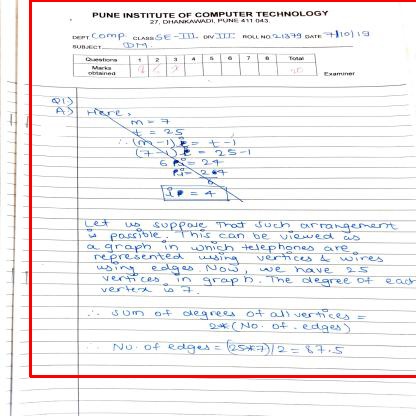 PUNE INSTITUTE OF COMPUTER TECHNOLOGY
27, DHANKAWADI, PUNE 411 043.
DEPT Comp. CLASS SE-III DIV III ROLL NO. 21379 DATE 7/10/19
SUBJECT DM.
Questions 1 2 3 4 5 6 7 8 Total
Marks obtained
Examiner
Q1)
A) Here,
m = 7
t = 25
∴ (m-1) = t-1
(7-1) = 25-1
= 24
= 4
Let us suppose that such arrangement
is possible. This can be viewed as
a graph in which telephones are
represented using vertices & wires
using edges. Now, we have 25
vertices in graph. The degree of each
vertex is 7.
∴ Sum of degrees of all vertices =
2*(No. of. edges)
∴ No. of edges = (25*7)/2 = 87.5